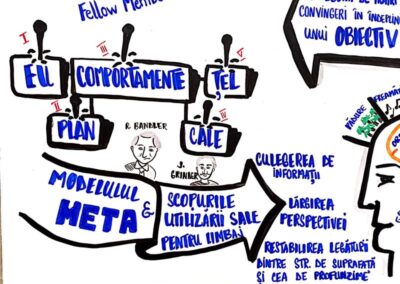 Fellow Membe
CONVINGERI ÎN ÎNDEPLIN
UNUI OBIECTIV
I
III
V
EU
COMPORTAMENTE
ȚEL
II
IV
PLAN
CALE
R. BANDLER
J. GRINDER
MODELULUL
META
&
SCOPURILE
UTILIZĂRII SALE
PENTRU LIMBAJ
CULEGEREA DE
INFORMAȚII
LĂRGIREA
PERSPECTIVEI
RESTABILIREA LEGĂTURII
DINTRE STR. DE SUPRAFAȚĂ
ȘI CEA DE PROFUNZIME"
PĂDURE